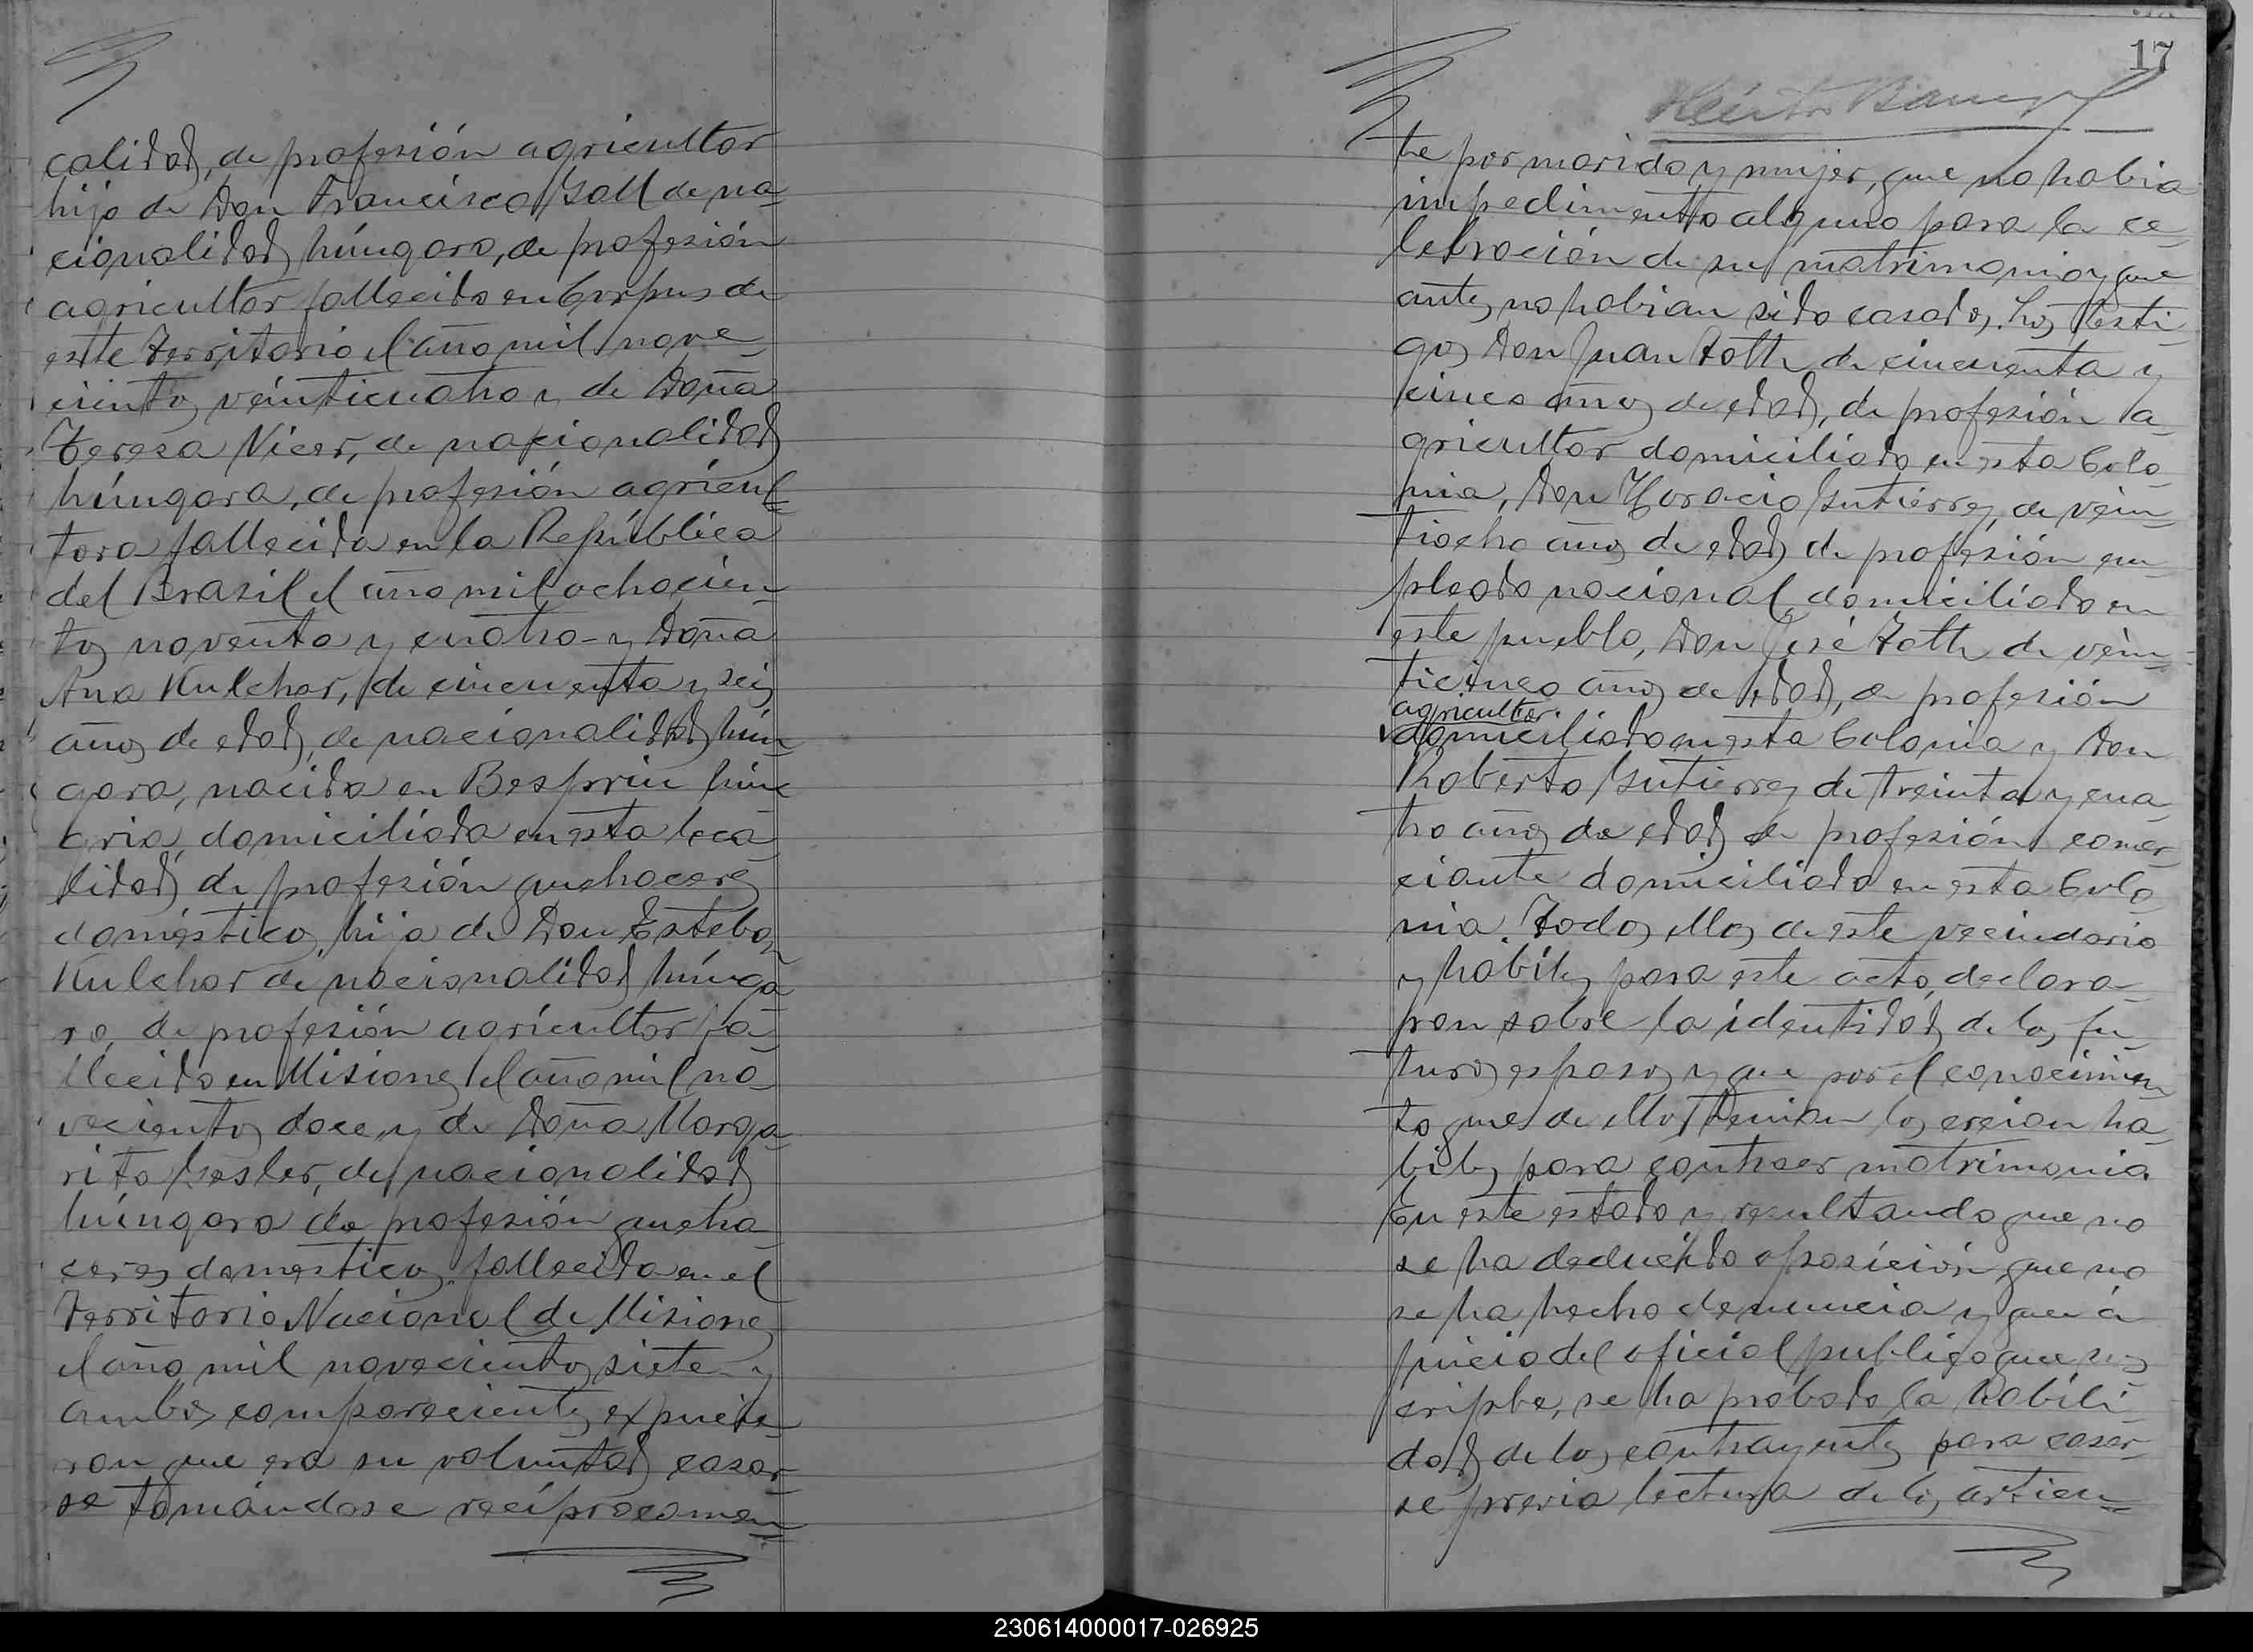 calidad, de profesión agricultor
hijo de Don Francisco Gall de na-
cionalidad húngaro, de profesión
agricultor fallecido en Corpus de
este Territorio el año mil nove-
cientos veinticuatro y de Doña
Teresa Nicer, de nacionalidad
húngara, de profesión agricul-
tora fallecida en la República
del Brasil el año mil ochocien-
tos noventa y cuatro - y Doña
Ana Kulchar, de cincuenta y seis
años de edad, de nacionalidad hún-
gara, nacida en Besprin hun
gria, domiciliada en esta loca-
lidad, de profesión quehaceres
domésticos, hija de Don Esteban
Kulchar de nacionalidad húnga-
ro, de profesión agricultor fa-
llecido en Misiones el año mil no-
vecientos doce, y de Doña Marga-
rita, de nacionalidad
húngara de profesión queha-
ceres domesticos, fallecida en el
Territorio Nacional de Misiones
el año mil novecientos siete y
ambos comparecientes expusie-
ron que era su voluntad casar-
se tomándose recíprocamen-
17
te por marido y mujer, que no habia
impedimento alguno para la ce-
lebración de su matrimonio y que
antes no habian sido casados. Los testi-
gos Don Juan Toth de cincuenta y
cinco años de edad, de profesión a-
gricultor domiciliado en esta Colo-
nia, Don Horacio Gutierrez, de vein-
tiocho años de edad de profesión em-
pleado nacional domiciliado en
este pueblo, Don José Toth de vein-
ticinco años de edad, de profesión
agricultor.
domiciliado en esta Colonia y Don
Roberto Gutierrez de treinta y cua-
tro años de edad de profesión comer-
ciante domiciliado en esta Colo-
nia. Todos ellos de este vecindario
y habiles para este acto, declara-
ron sobre la identidad de los fu-
turos esposos y que por el conocimien-
to que de ellos tenian los creian ha-
biles para contraer matrimonio.
En este estado y resultando que no
se ha deducido oposición, que no
se ha hecho denuncia y que á
juicio del oficial publico que sus
cripbe, se ha probado la habili-
dad de los contrayentes para casar-
se previa lectura de los articu-
230614000017-026925